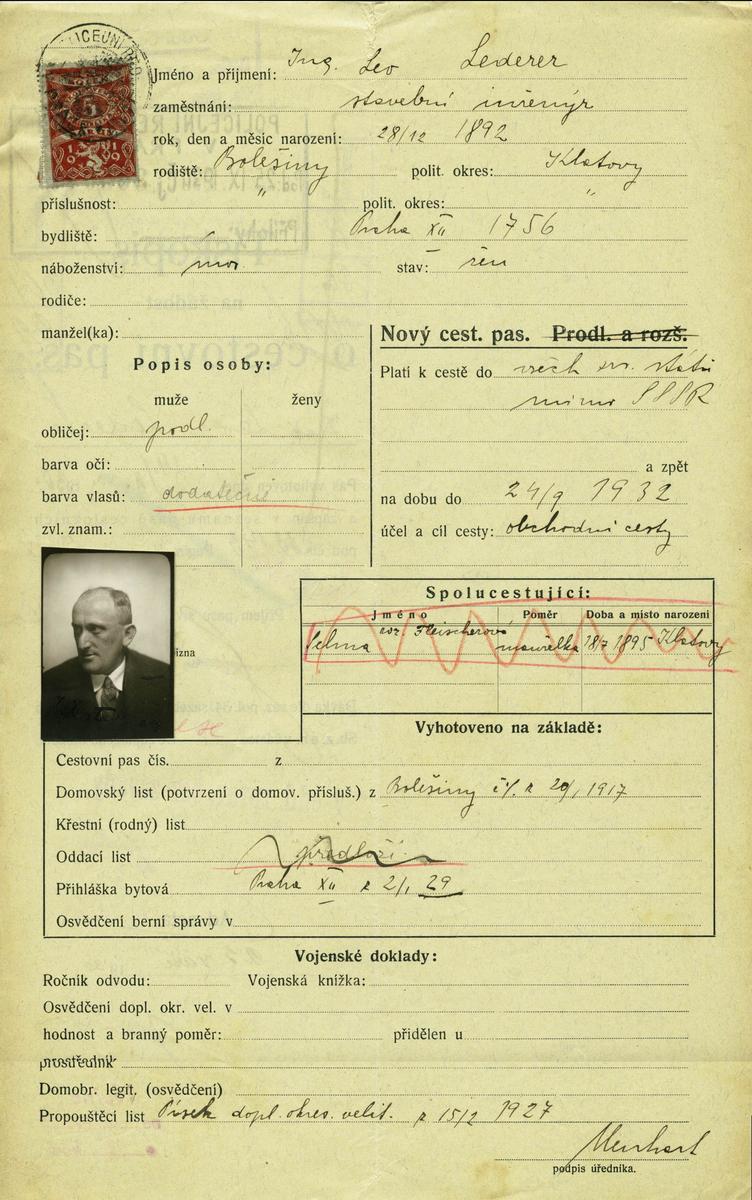 Jméno a příjmení: Ing. Leo Lederer
zaměstnání: stavební inženýr
rok, den a měsíc narození: 28/12 1892
rodiště: Bolešiny polit. okres: Klatovy
příslušnost: " polit. okres: "
bydliště: Praha XII 1756
náboženství: moj. stav: žen
rodiče:
manžel(ka):
Popis osoby:
muže ženy
obličej: podl.
barva očí:
barva vlasů: dodatečně
zvl. znam.:
Nový cest. pas. Prodl. a rozš.
Platí k cestě do všech ev. států
mimo SSSR
a zpět
na dobu do 24/9 1932
účel a cíl cesty: obchodní cesty
Spolucestující:
Jméno Poměr Doba a místo narození
roz. Fleischerová
Selma manželka 18/7 1895 Klatovy
Vyhotoveno na základě:
Cestovní pas čís. z
Domovský list (potvrzení o domov. přísluš.) z Bolešiny čj. z 20/1 1917
Křestní (rodný) list
Oddací list předloží
Přihláška bytová Praha XII z 2/1 29
Osvědčení berní správy v
Vojenské doklady:
Ročník odvodu: Vojenská knížka:
Osvědčení dopl. okr. vel. v
hodnost a branný poměr: přidělen u
prostředník
Domobr. legit. (osvědčení)
Propouštěcí list Písek dopl. okres. velit. z 15/2 1927
podpis úředníka.